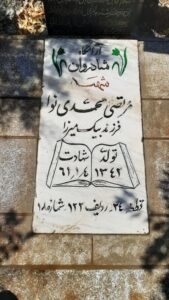 آرامگاه
شادروان
شهید
مرتضی مهدی نوا
فرزند بیک میرزا
تولد شهادت
۱۳۴۲ ۶۱/۱/۴
قطعه ۲۴ ردیف ۱۲۲ شماره ۱۸